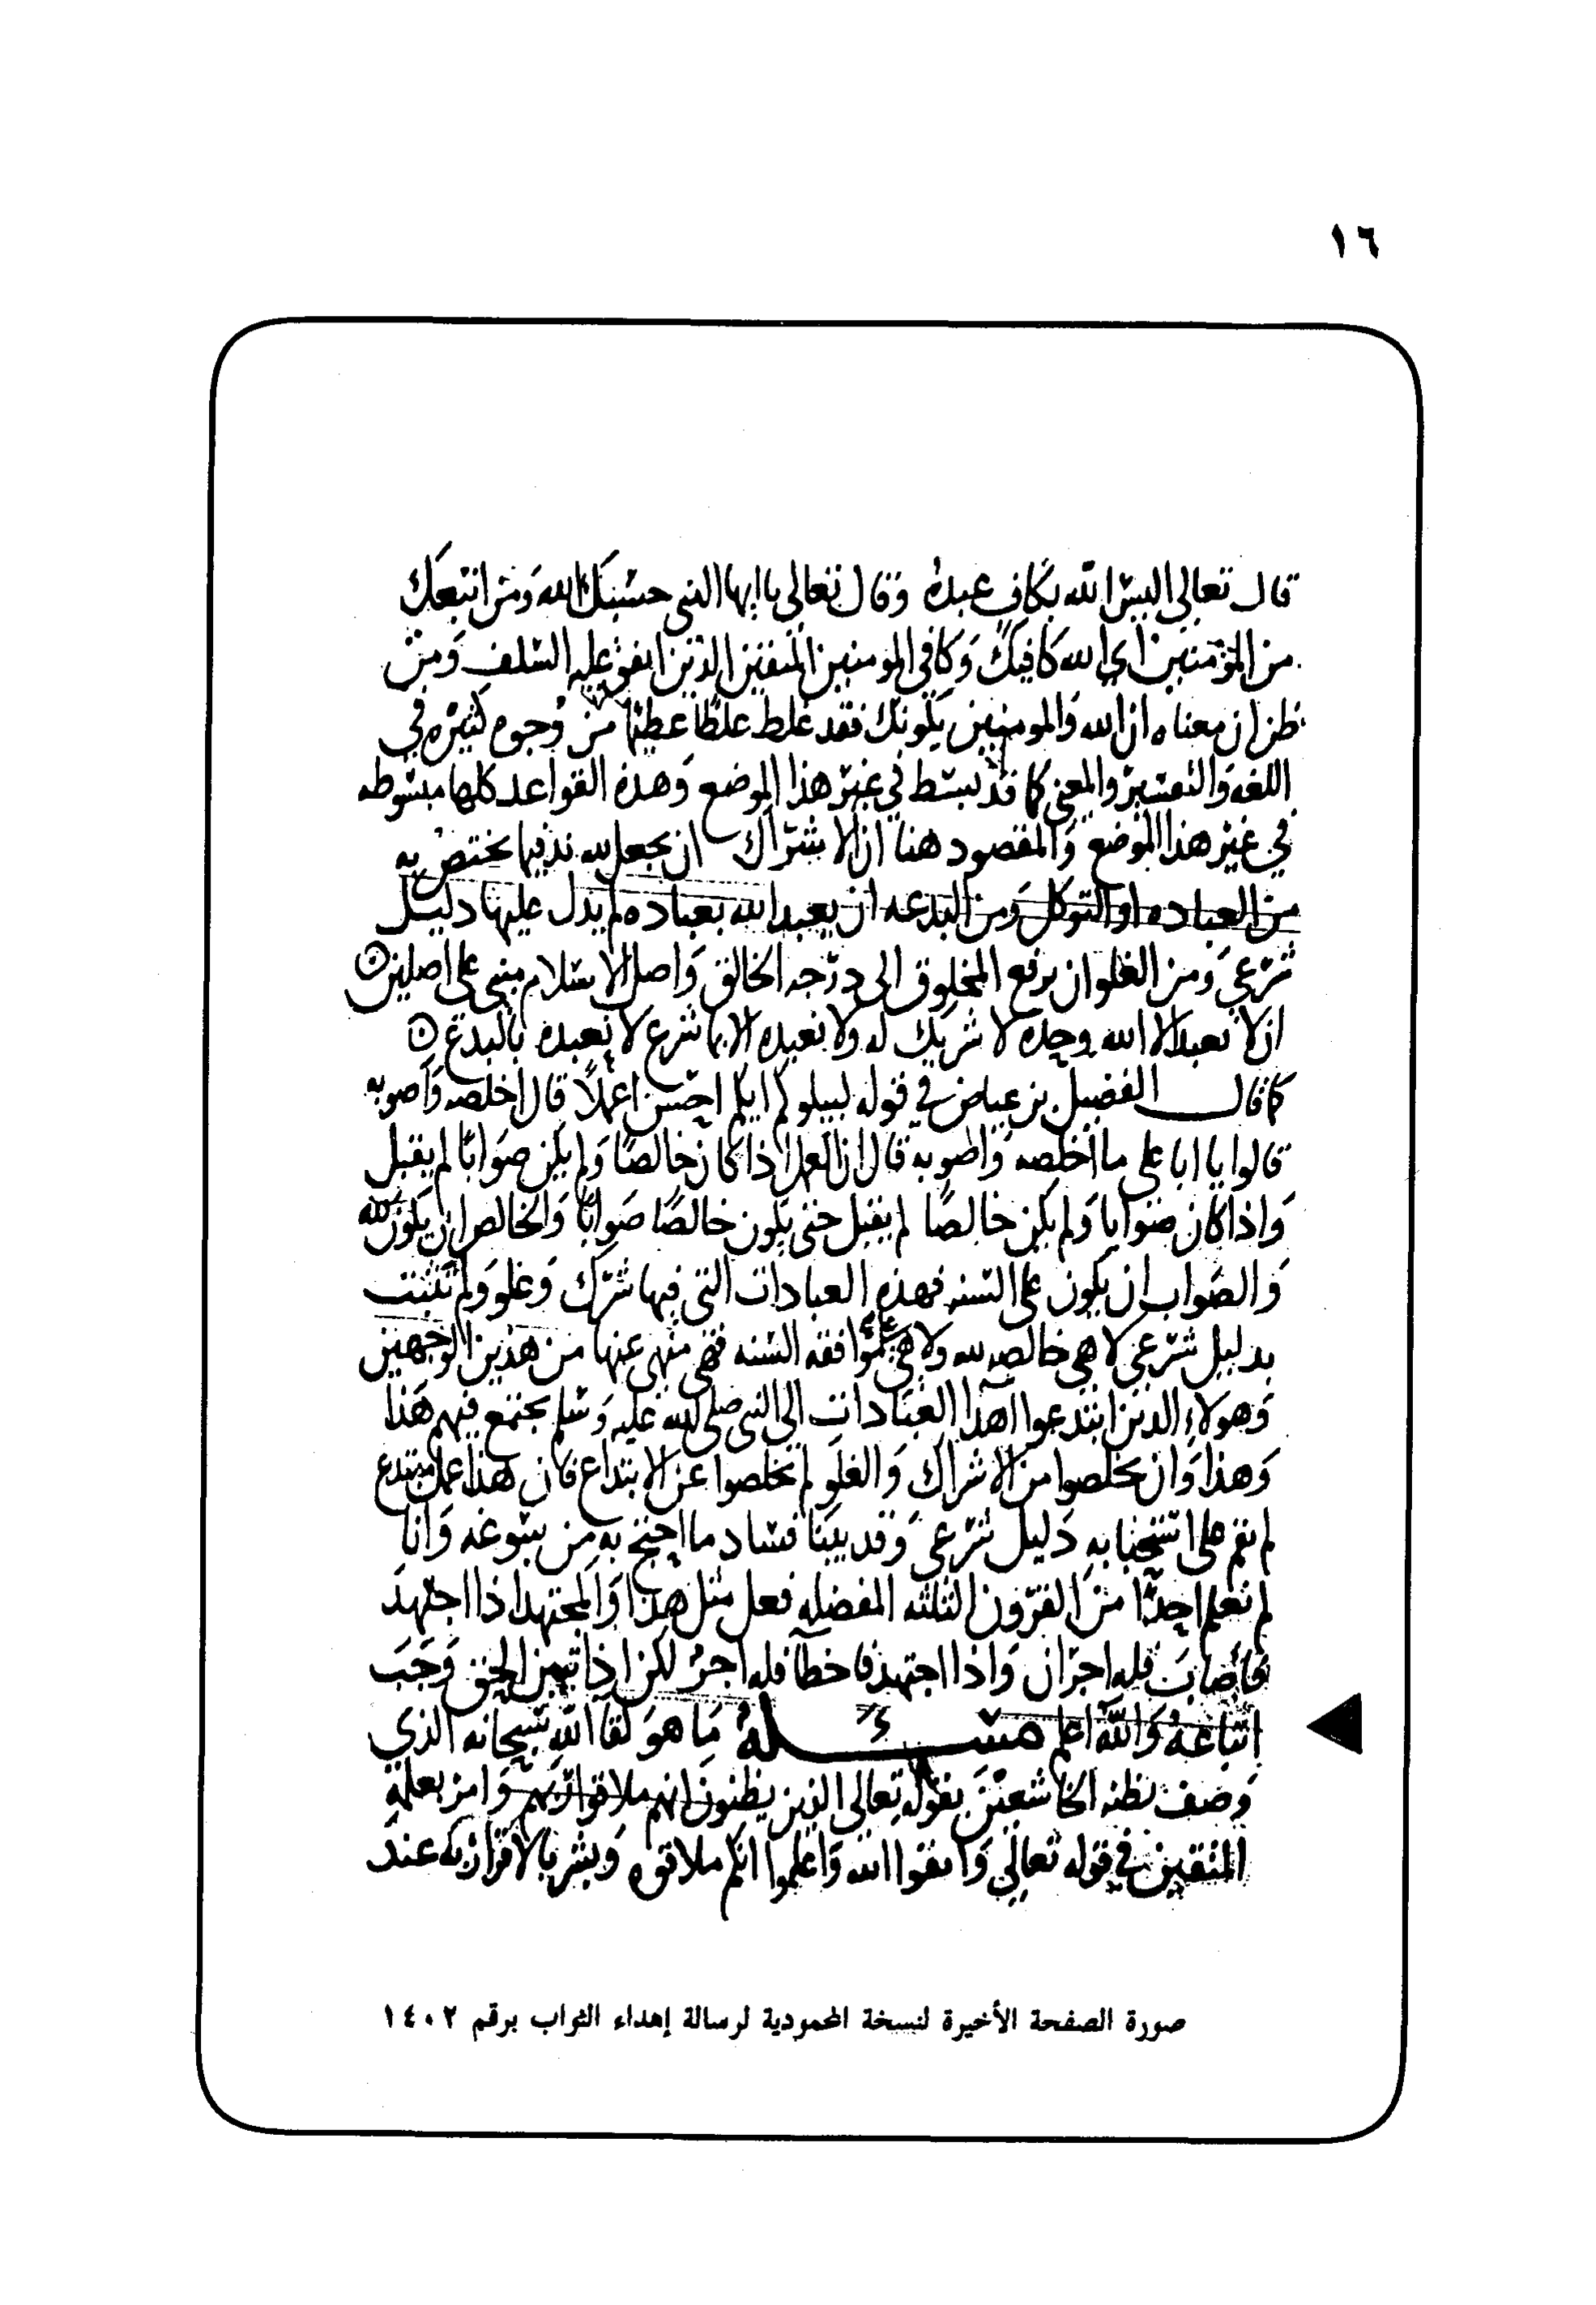 ١٦
قال تعالى اليس الله بكاف عبده وقال تعالى ياايها النبي حسبك الله ومن اتبعك
من المؤمنين اي الله كافيك وكافي المومنين المتقين الذين اتفق عليه السلف ومن
ظن ان معناه ان الله والمومنين يكفونك فقد غلط غلطا عظيما من وجوه كثيره في
اللغه والتفسير والمعنى كما قد بسط في غير هذا الموضع وهذه القواعد كلها مبسوطه
في غير هذا الموضع والمقصود هنا ان الاشراك ان يجعل لله ند فيما يختص به
من العباده او التوكل ومن البدعه ان يعبد الله بعباده لم يدل عليها دليل
شرعي ومن الغلو ان يرفع المخلوق الى درجه الخالق واصل الاسلام مبني على اصلين
ان لا نعبد الا الله وحده لا شريك له ولا نعبده الا بما شرع لا نعبده بالبدع
كما قال الفضيل بن عياض في قوله ليبلوكم ايكم احسن عملا قال اخلصه واصوبه
قالوا يا ابا علي ما اخلصه واصوبه قال ان العمل اذا كان خالصا ولم يكن صوابا لم يقبل
واذا كان صوابا ولم يكن خالصا لم يقبل حتى يكون خالصا صوابا والخالص ان يكون لله
والصواب ان يكون على السنه فهذه العبادات التي فيها شرك وغلو ولم تثبت
بدليل شرعي لا هي خالصه لله ولا هي موافقه السنه فهي منهي عنها من هذين الوجهين
وهولاء الذين ابتدعوا اهدا العبادات الى النبي صلى الله عليه وسلم يجتمع فيهم هذا
وهذا وان تخلصوا من الاشراك والغلو لم يخلصوا عن الابتداع فان هذا عمل مبتدع
لم يقم على استحبابه دليل شرعي وقد بينا فساد ما احتج به من يسوغه وانا
لم نعلم احدا من القرون الثلثه المفضله فعل مثل هذا والمجتهد اذا اجتهد
فاصاب فله اجران واذا اجتهد فاخطا فله اجر لكن اذا تبين الحق وجب
اتباعه والله اعلم مسئله ما هو لقا الله سبحانه الذي
وصف بظنه الخاشعين بقوله تعالى الذين يظنون انهم ملاقوا ربهم وامر بعلمه
المتقين في قوله تعالى واتقوا الله واعلموا انكم ملاقوه وبشر بالاقرار به عند
صورة الصفحة الأخيرة لنسخة المحمودية لرسالة إهداء الثواب برقم ١٤٠٢